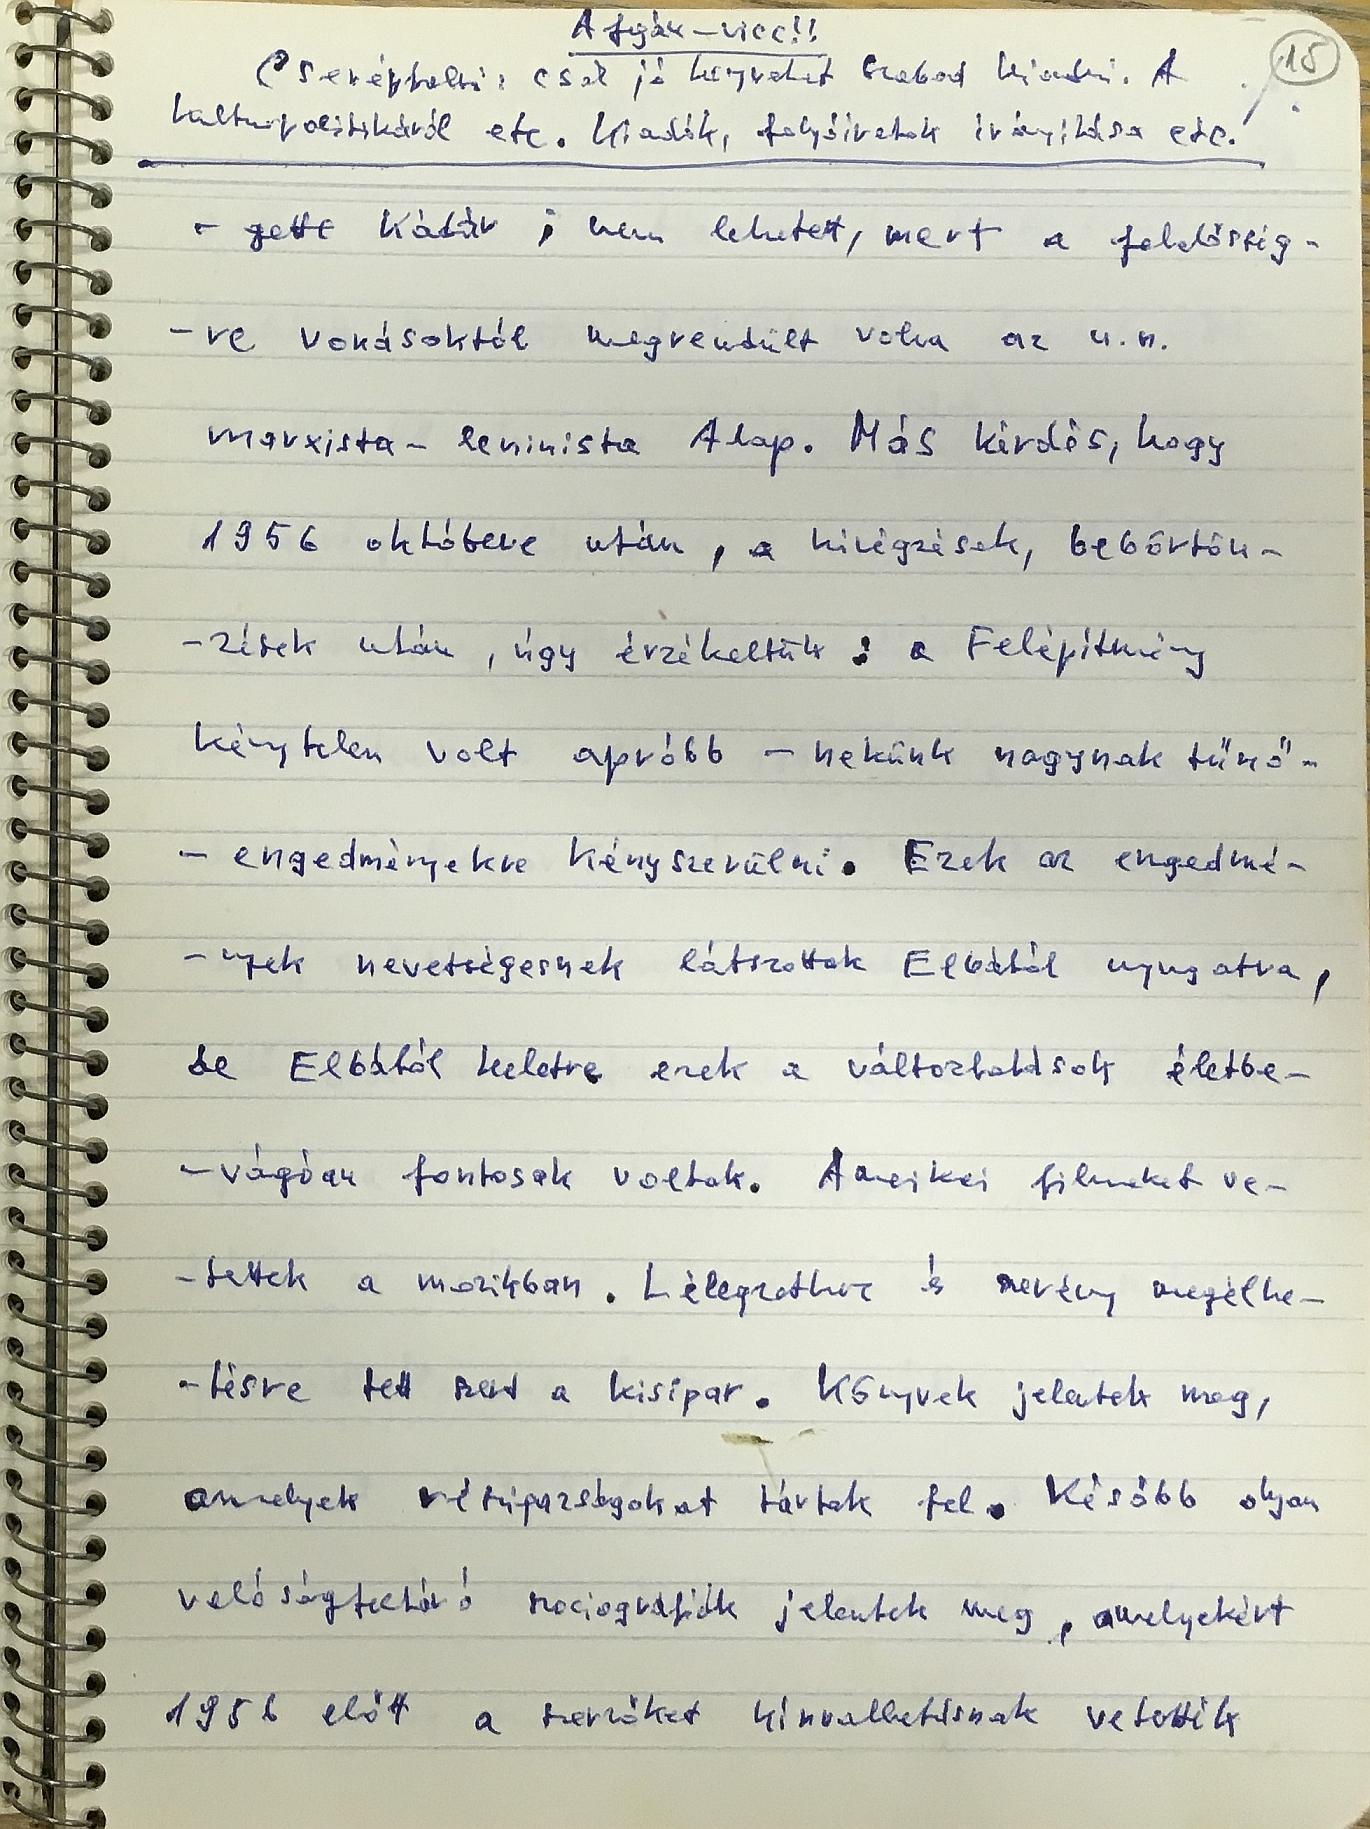 Afgán-vicc!!
15
Cserépfalvi: csak jó könyveket szabad kiadni. A
kultúrpolitikáról etc. Kiadók, folyóiratok irányítása etc.
- gette Kádár; nem lehetett, mert a felelősség-
-re vonásoktól megrendült volna az u.n.
marxista-leninista Alap. Más kérdés, hogy
1956 októbere után, a kivégzések, bebörtön-
-zések után, úgy érzékeltük: a Felépítmény
kénytelen volt apróbb - nekünk nagynak tűnő -
- engedményekre kényszerülni. Ezek az engedmé-
-nyek nevetségesnek látszottak Elbától nyugatra,
de Elbától keletre ezek a változtatások életbe-
-vágóan fontosak voltak. Ameikei filmeket ve-
-tettek a mozikban. Lélegzethez és szerény megélhe-
-tésre tett szert a kisipar. Könyvek jelentek meg,
amelyek részigazságokat tártak fel. Később olyan
valóságfeltáró szociográfiák jelentek meg, amelyekért
1956 előtt a szerzőket kínvallatásnak vetették